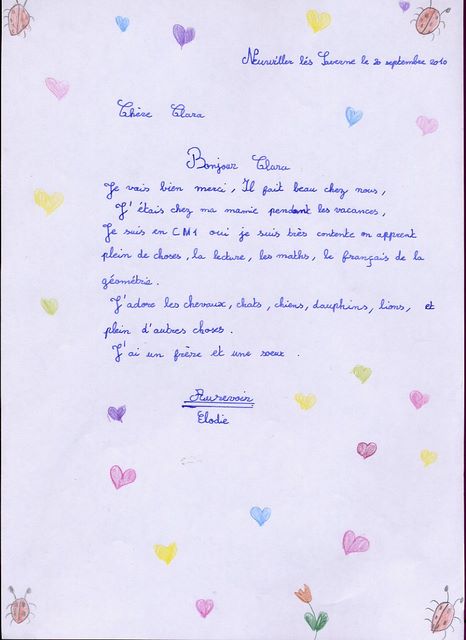 Neuwiller lés Saverne le 20 septembre 2010
Chère Clara
Bonjour Clara
Je vais bien merci, Il fait beau chez nous,
J'étais chez ma mamie pendant les vacances,
Je suis en CM1 oui je suis très contente on apprent
plein de choses, la lecture, les maths, le français de la
géométrie.
J'adore les chevaux, chats, chiens, dauphins, lions, et
plein d'autres choses.
J'ai un frère et une soeur.
Aurevoir
Elodie